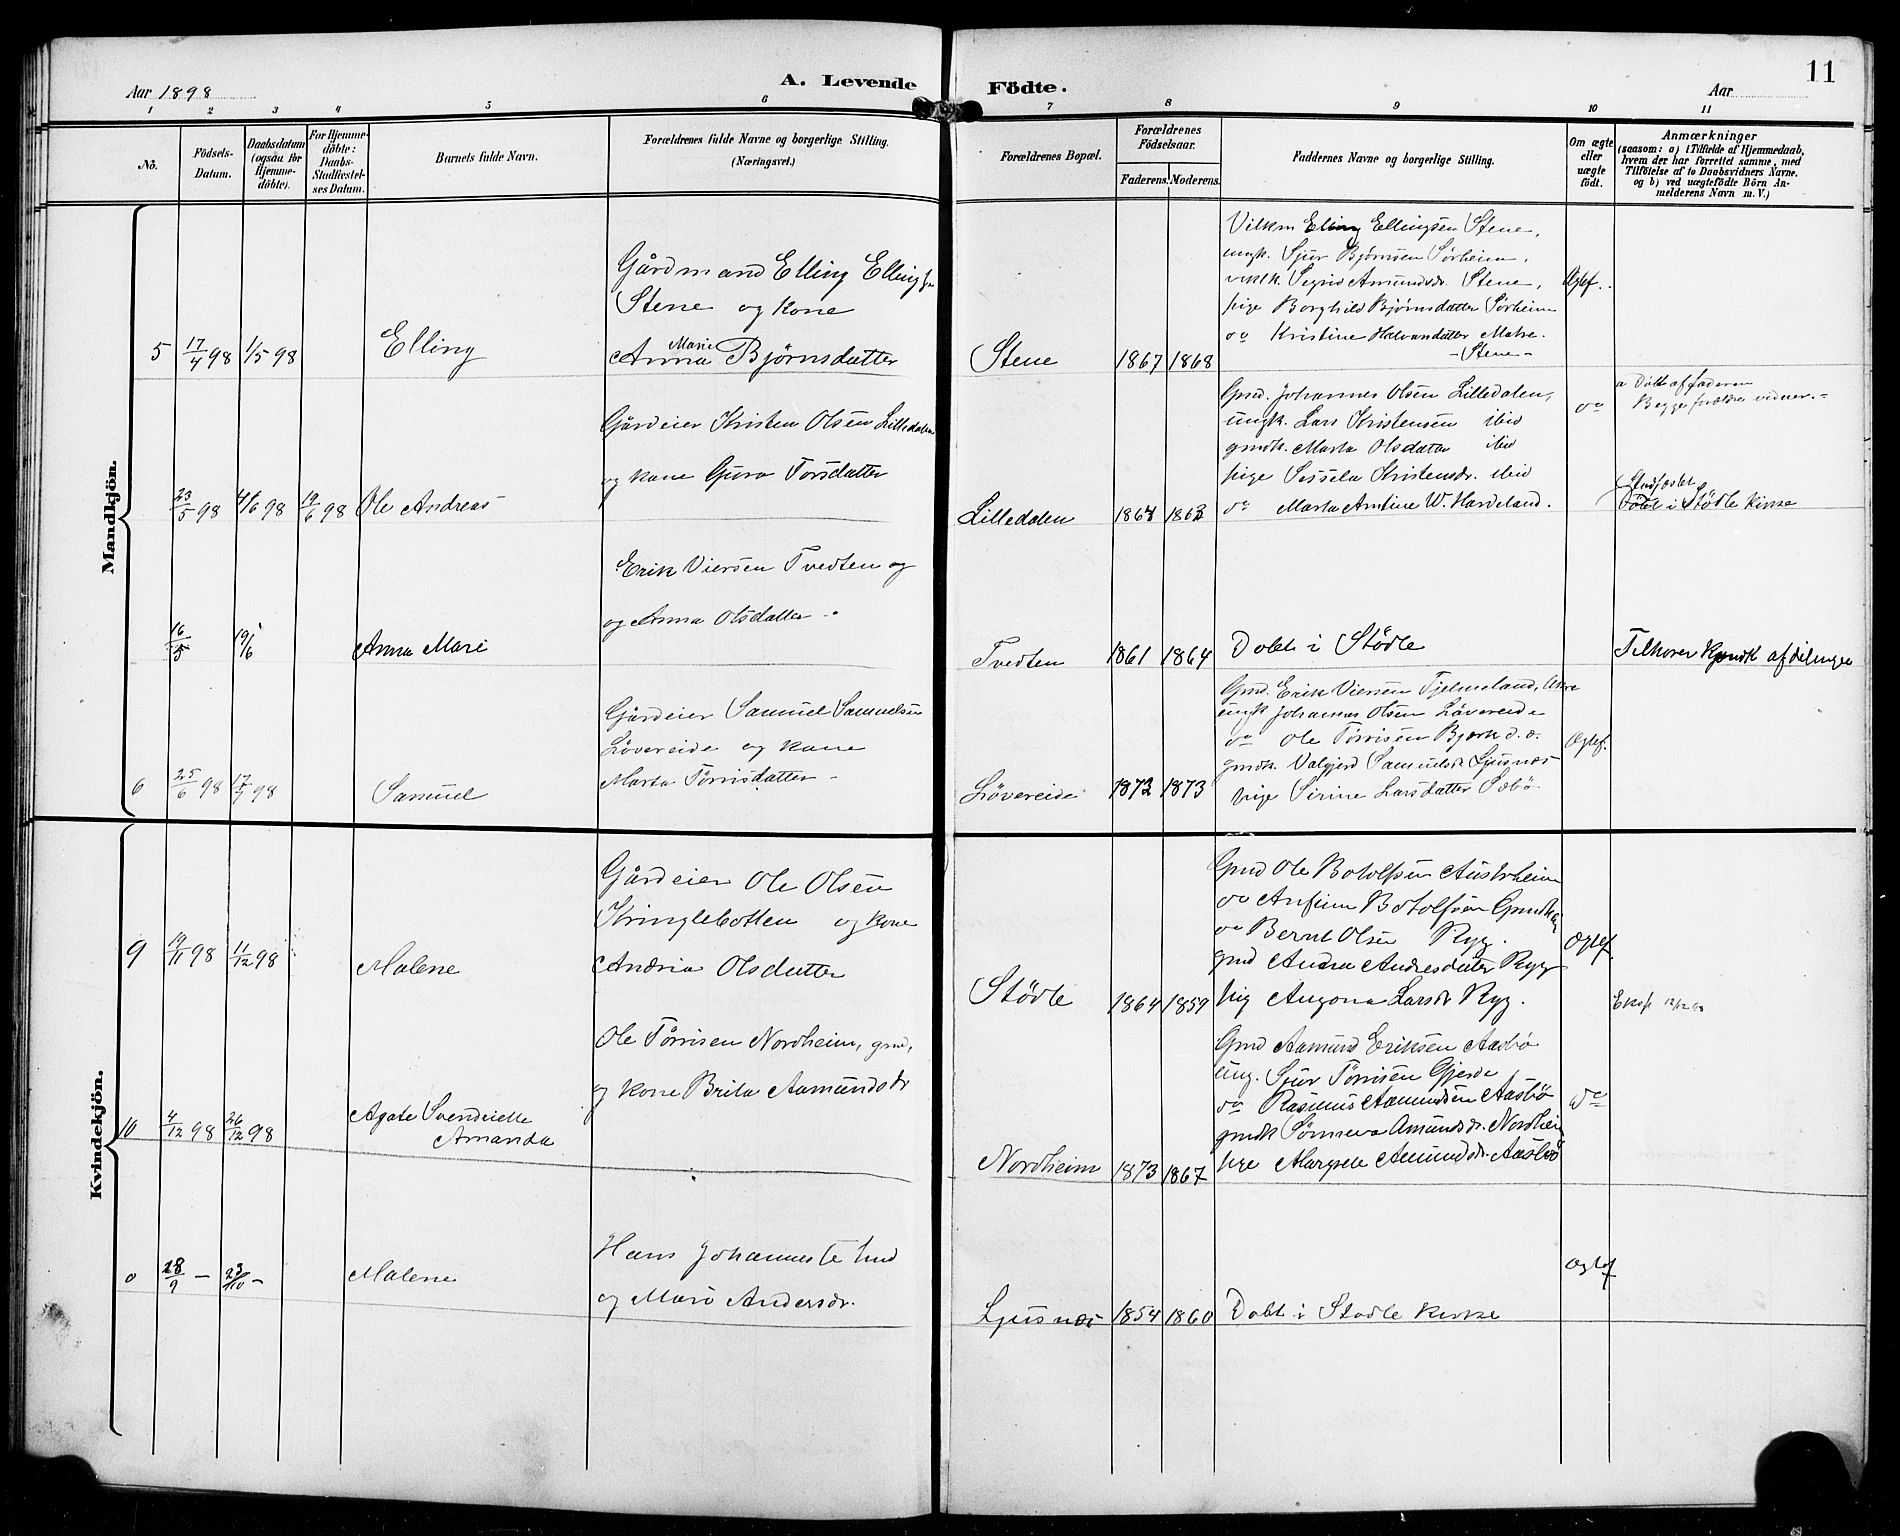 Aar 1898
A. Levende
Födte.
Aar
11
1 2 3 4 5 6 7 8 9 10 11
Nō.
Födsels-
Datum.
Daabsdatum
(ogsaa for
Hjemme-
döbte).
For Hjemme-
döbte:
Daabs-
Stadfæstel-
ses Datum.
Barnets fulde Navn.
Forældrenes fulde Navne og borgerlige Stilling.
(Næringsvei.)
Forældrenes Bopæl.
Forældrenes
Födselsaar.
Faderens.
Moderens.
Faddernes Navne og borgerlige Stilling.
Om ægte
eller
uægte
födt.
Anmærkninger
(saasom: a) i Tilfælde af Hjemmedaab,
hvem der har forrettet samme, med
Tilföielse af to Daabsvidners Navne.
og b) ved uægtefödte Börn An-
melderens Navn m. V.)
Mandkjön.
5 17/4 98 1/5 98 Elling
Gårdmand Elling Ellingsn
Stene og kone
Marie
Anna Bjørnsdatter
Stene 1867 1868
Vilkm Elling Ellingsen Stene,
ungk. Sjur Bjørnsen Sørheim,
Sigrid Amundsdr. Stene,
pige Borghild Bjørnsdatter Sørheim
do Kristine Halvorsdatter Matre.
-Stene-
Ægtef.
23/5 98 4/6 98 19/6 98 Ole Andreas
Gårdeier Kristen Olsen Lilledalen
og kone Guro Torsdatter
Lilledalen 1867 1862
Gmd. Johannes Olsen Lilledalen,
ungk. Lars Kristensen ibid
gmdk. Marta Olsdatter ibid
pige Sessela Kristensdr. ibid
do Marta Antine W. Hardeland.
do
a Döbt af faderen
Begge forældre vidner.-
Stadfæstet
Döbt i Stödle Kirke
16/5 19/6 Anna Mari
Erik Viersen Tvedten og
og Anna Olsdatter -
Tvedten 1861 1864
Döbt i Stödle
Tilhører afdelingen
6 25/6 98 17/7 98 Samuel
Gårdeier Samuel Samuelsen
Løvereide og kone
Marta Tørrisdatter -
Løvereide 1872 1873
Gmd. Erik Viersen Tjelmeland,
ungk Johannes Olsen Løvereide
do Ole Tørrisen Bjørk d. o.
gmdk. Valgjerd Samuelsdr Ljusnæs
pige Sirine Larsdatter Sæbö.
Ægtef.
Kvindekjön.
9 19/11 98 11/12 98 Malene
Gårdeier Ole Olsen
Kringlebotten og kone
Andria Olsdatter
Stödle 1864 1859
Gmd Ole Botolfsen Austrheim
do Anfinn Botolfsen
do Bernt Olsen Ryg.
gmd Andrea Andresdatter Rygg
pig Augona Larsdr Ryg.
Ægtef.
12/12 98
10 4/12 98 26/12 98 Agate Svendeielle
Amanda
Ole Tørrisen Nordheim, gmd,
og kone Brita Aamundsdr
Nordheim 1873 1867
Gmd Aamund Eriksen Aasbö
ung. Sjur Tørrisen Gjerde
do Rasmus Aamundsen Aasbö
gmdk Sønneva Amundsdr. Nordheim
pige Margrete Amundsdr. Aasbö
do
0 28/9 - 23/10 - Malene
Hans Johannes
og Mari Andersdr.
Ljusnæs 1854 1860
Döbt i Stödle Kirke
Ægtef